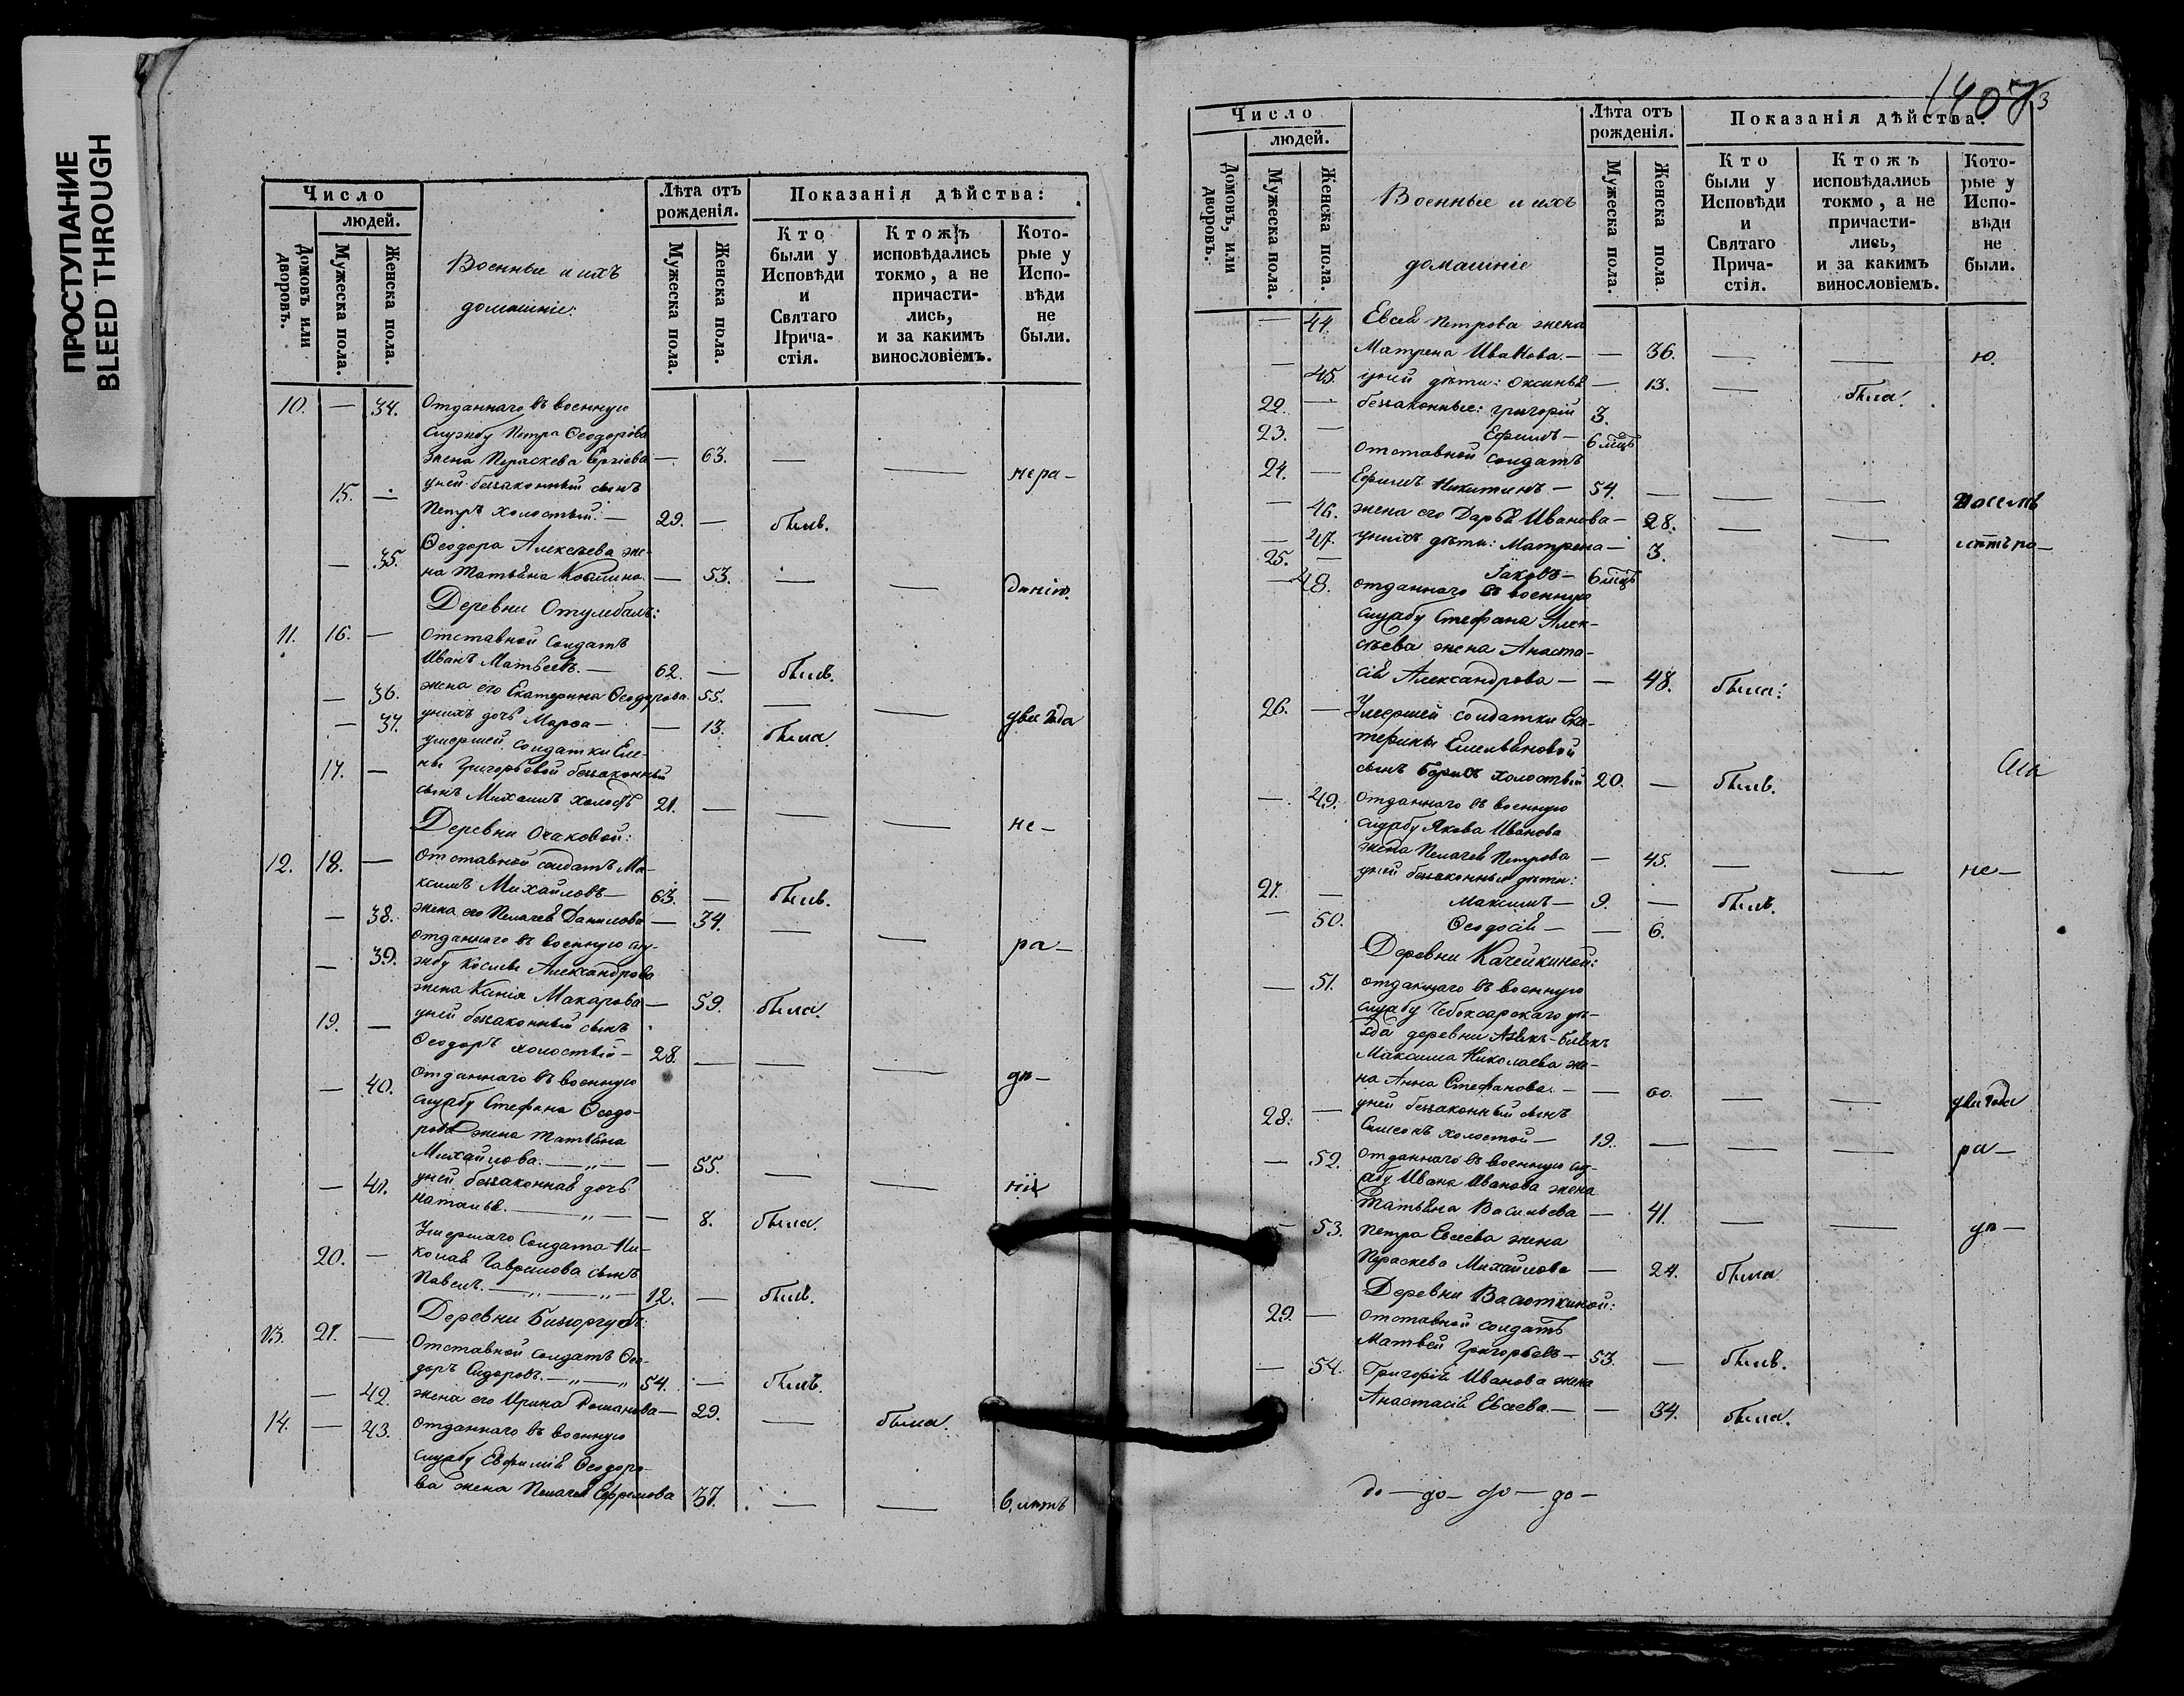 ПРОСТУПАНИЕ
BLEED THROUGH
Число
людей.
Домовъ или дворовъ.
Мужеска пола.
Женска пола.
Военные и ихъ
домашніе:
Лѣта отъ рожденія.
Мужеска пола.
Женска пола.
Показанія дѣйства:
Кто были у Исповѣди и Святаго Причастія.
Ктожъ исповѣдались токмо, а не причастились, и за какимъ винословіемъ.
Которые у Исповѣди не были.
10. — 34. Отданнаго въ военную
службу Петра Ѳеодорова
жена Параскева Сергіева — 63. — — нера-
15. — у ней беззаконный сынъ
Петръ холостый. — 29. — былъ.
— 35. Ѳеодора Алексѣева же-
на Татьяна — 53. — — дѣнію.
Деревни
11. 16. — Отставной Солдатъ
Иванъ Матвеевъ. — 62. — былъ.
— 36. жена его Екатерина Ѳеодорова. 55. — — два года
— 37. у нихъ дочь Марѳа — — 13. была.
умершей солдатки Еле-
17. — ны Григорьевой беззаконный
сынъ Михаилъ холостъ 21. — — — не-
Деревни Очаковой:
12. 18. — Отставной солдатъ Ма-
ксимъ Михайловъ — 63. — былъ.
— 38. жена его Пелагея Данилова — 34. — — ра-
отданнаго въ военную слу-
— 39. жбу Александрова
жена Ксенія Макарова — 59. была.
19. — у ней беззаконный сынъ
Ѳеодоръ холостый — 28. — — — дѣ-
— 40. Отданнаго въ военную
службу Стефана Ѳеодо-
рова жена Татьяна
Михайлова. — „ — — 55. — — ніи
— 41. у ней беззаконная дочь
Наталья. — „ — — 8. была.
Умершаго Солдата Ни-
20. — колая Гаврилова сынъ
Павелъ. — „ — „ — 12. — былъ.
Деревни
13. 21. — Отставной Солдатъ Ѳео-
доръ Сидоровъ. — „ — „ 54. — былъ.
— 42. жена его Ирина Романова — 29. — была.
14. — 43. Отданнаго въ военную
службу Евфимія Ѳеодоро-
ва жена Пелагея Ефремова 37. — — 6 лѣтъ
1407
3
Число
людей.
Домовъ, или дворовъ.
Мужеска пола.
Женска пола.
Военные и ихъ
домашніе
Лѣта отъ рожденія.
Мужеска пола.
Женска пола
Показанія дѣйства:
Кто были у Исповѣди и Святаго Причастія.
Ктожъ исповѣдались токмо, а не причастились, и за какимъ винословіемъ.
Которые у Исповѣди не были.
— 44. Евсея Петрова жена
Матрена Ивакова. — — 36. — — ю.
— 45. у ней дѣти: Оксинья — 13. — была.
22. — беззаконные: Григорій 3.
23. — Ефимъ — 6 мѣцъ
отставной солдатъ
24. — Ефимъ Никитинъ — 54. — — —
— 46. жена его Дарья Иванова — 28. —
— 47. у нихъ дѣти: Матрена — 3.
25. — Іаковъ — 6 мѣцъ
— 48. отданнаго въ военную
службу Стефана Алек-
сѣева жена Анаста-
сія Александрова — — 48. была:
26. — Умершей солдатки Ека-
терины Емельяновой
сынъ Борисъ холостый 20. — былъ.
— 49. отданнаго въ военную
службу Якова Иванова
жена Пелагея Петрова — 45. — — не-
у ней беззаконные дѣти:
27. — Максимъ — 9. — былъ.
— 50. Ѳеодосія — — 6.
Деревни Качейкиной:
— 51. отданнаго въ военную
службу Чебоксарскаго уѣ-
зда деревни
Максима Николаева же-
на Анна Стефанова. — — 60. — — два года
28. — у ней беззаконный сынъ
Симеонъ холостой — 19. — — — ра-
— 52. отданнаго въ военную слу-
жбу Ивана Иванова жена
Татьяна Васильева — 41. — — дѣ-
— 53. Петра Евсеева жена
Параскева Михайлова — 24. была
Деревни Васюткиной:
29. — отставной солдатъ
Матвей Григорьевъ — 53. — былъ.
— 54. Григорія Иванова жена
Анастасія Евсеева. — — 34. была.